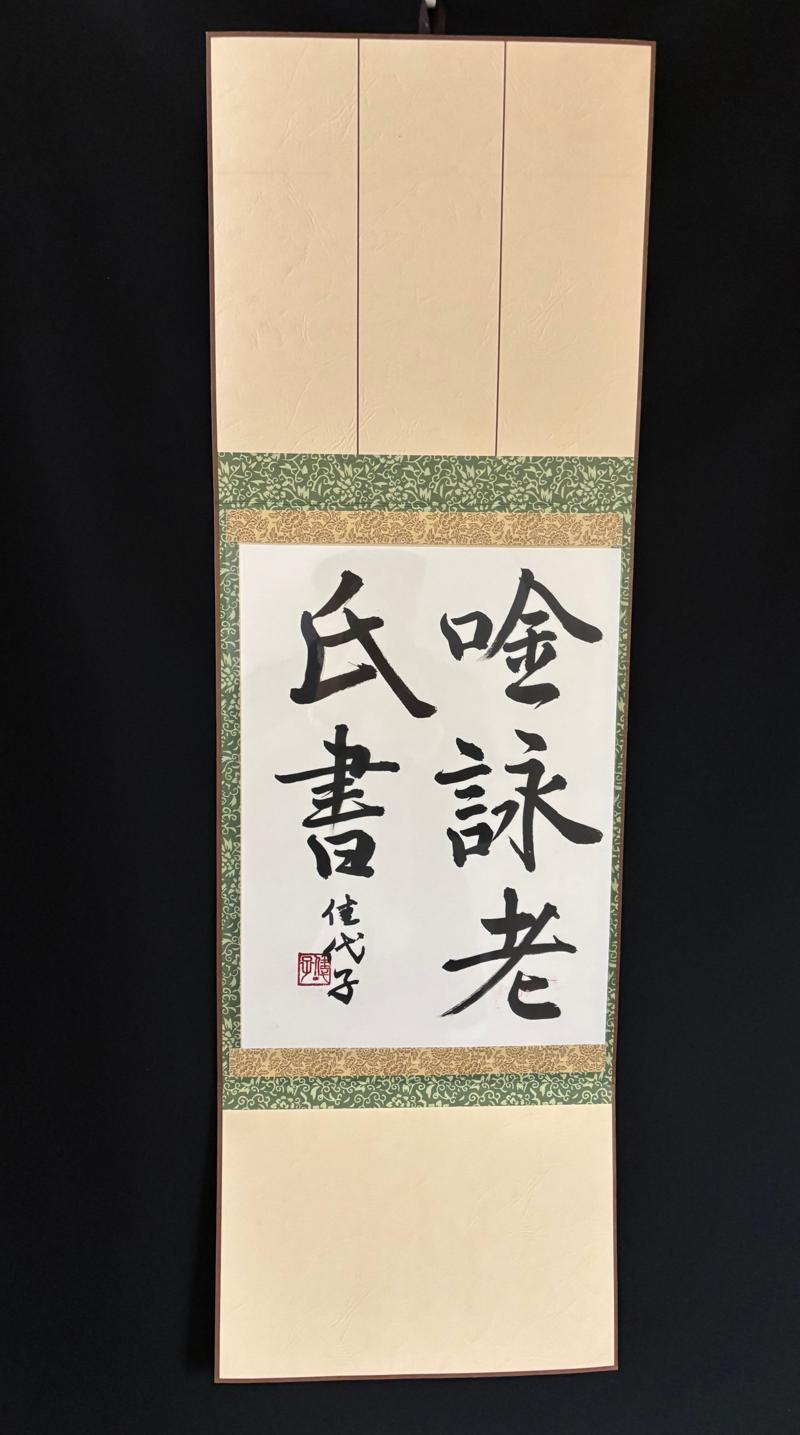 唫詠老
氏書
佳代子